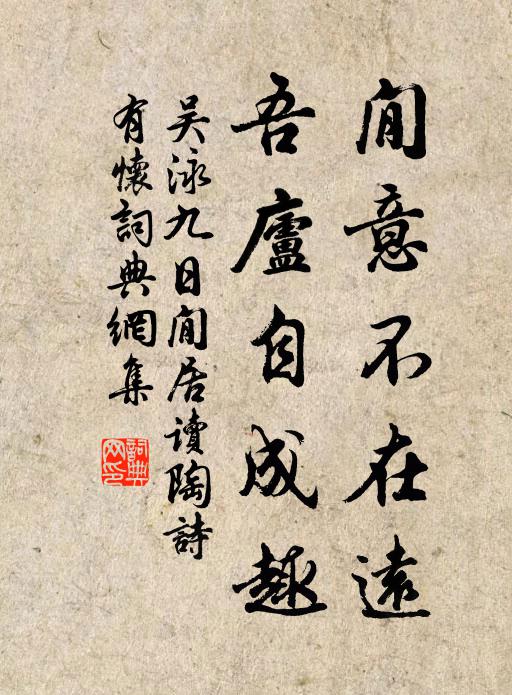 閒意不在遠
吾廬自成趣
吳泳九日閒居讀陶詩
有懷詞典網集
詞典
网印